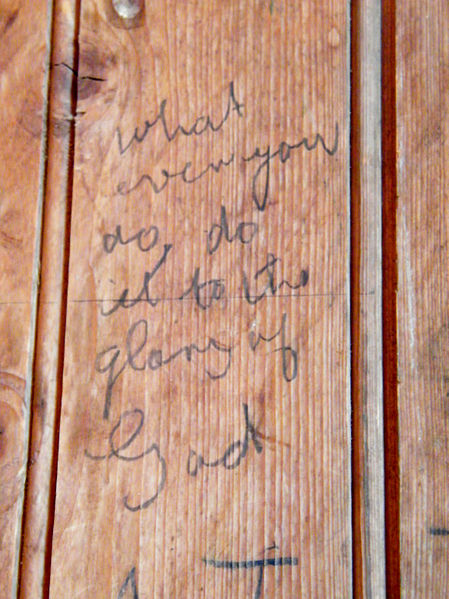 what
ever you
do, do
it to the
glory of
God